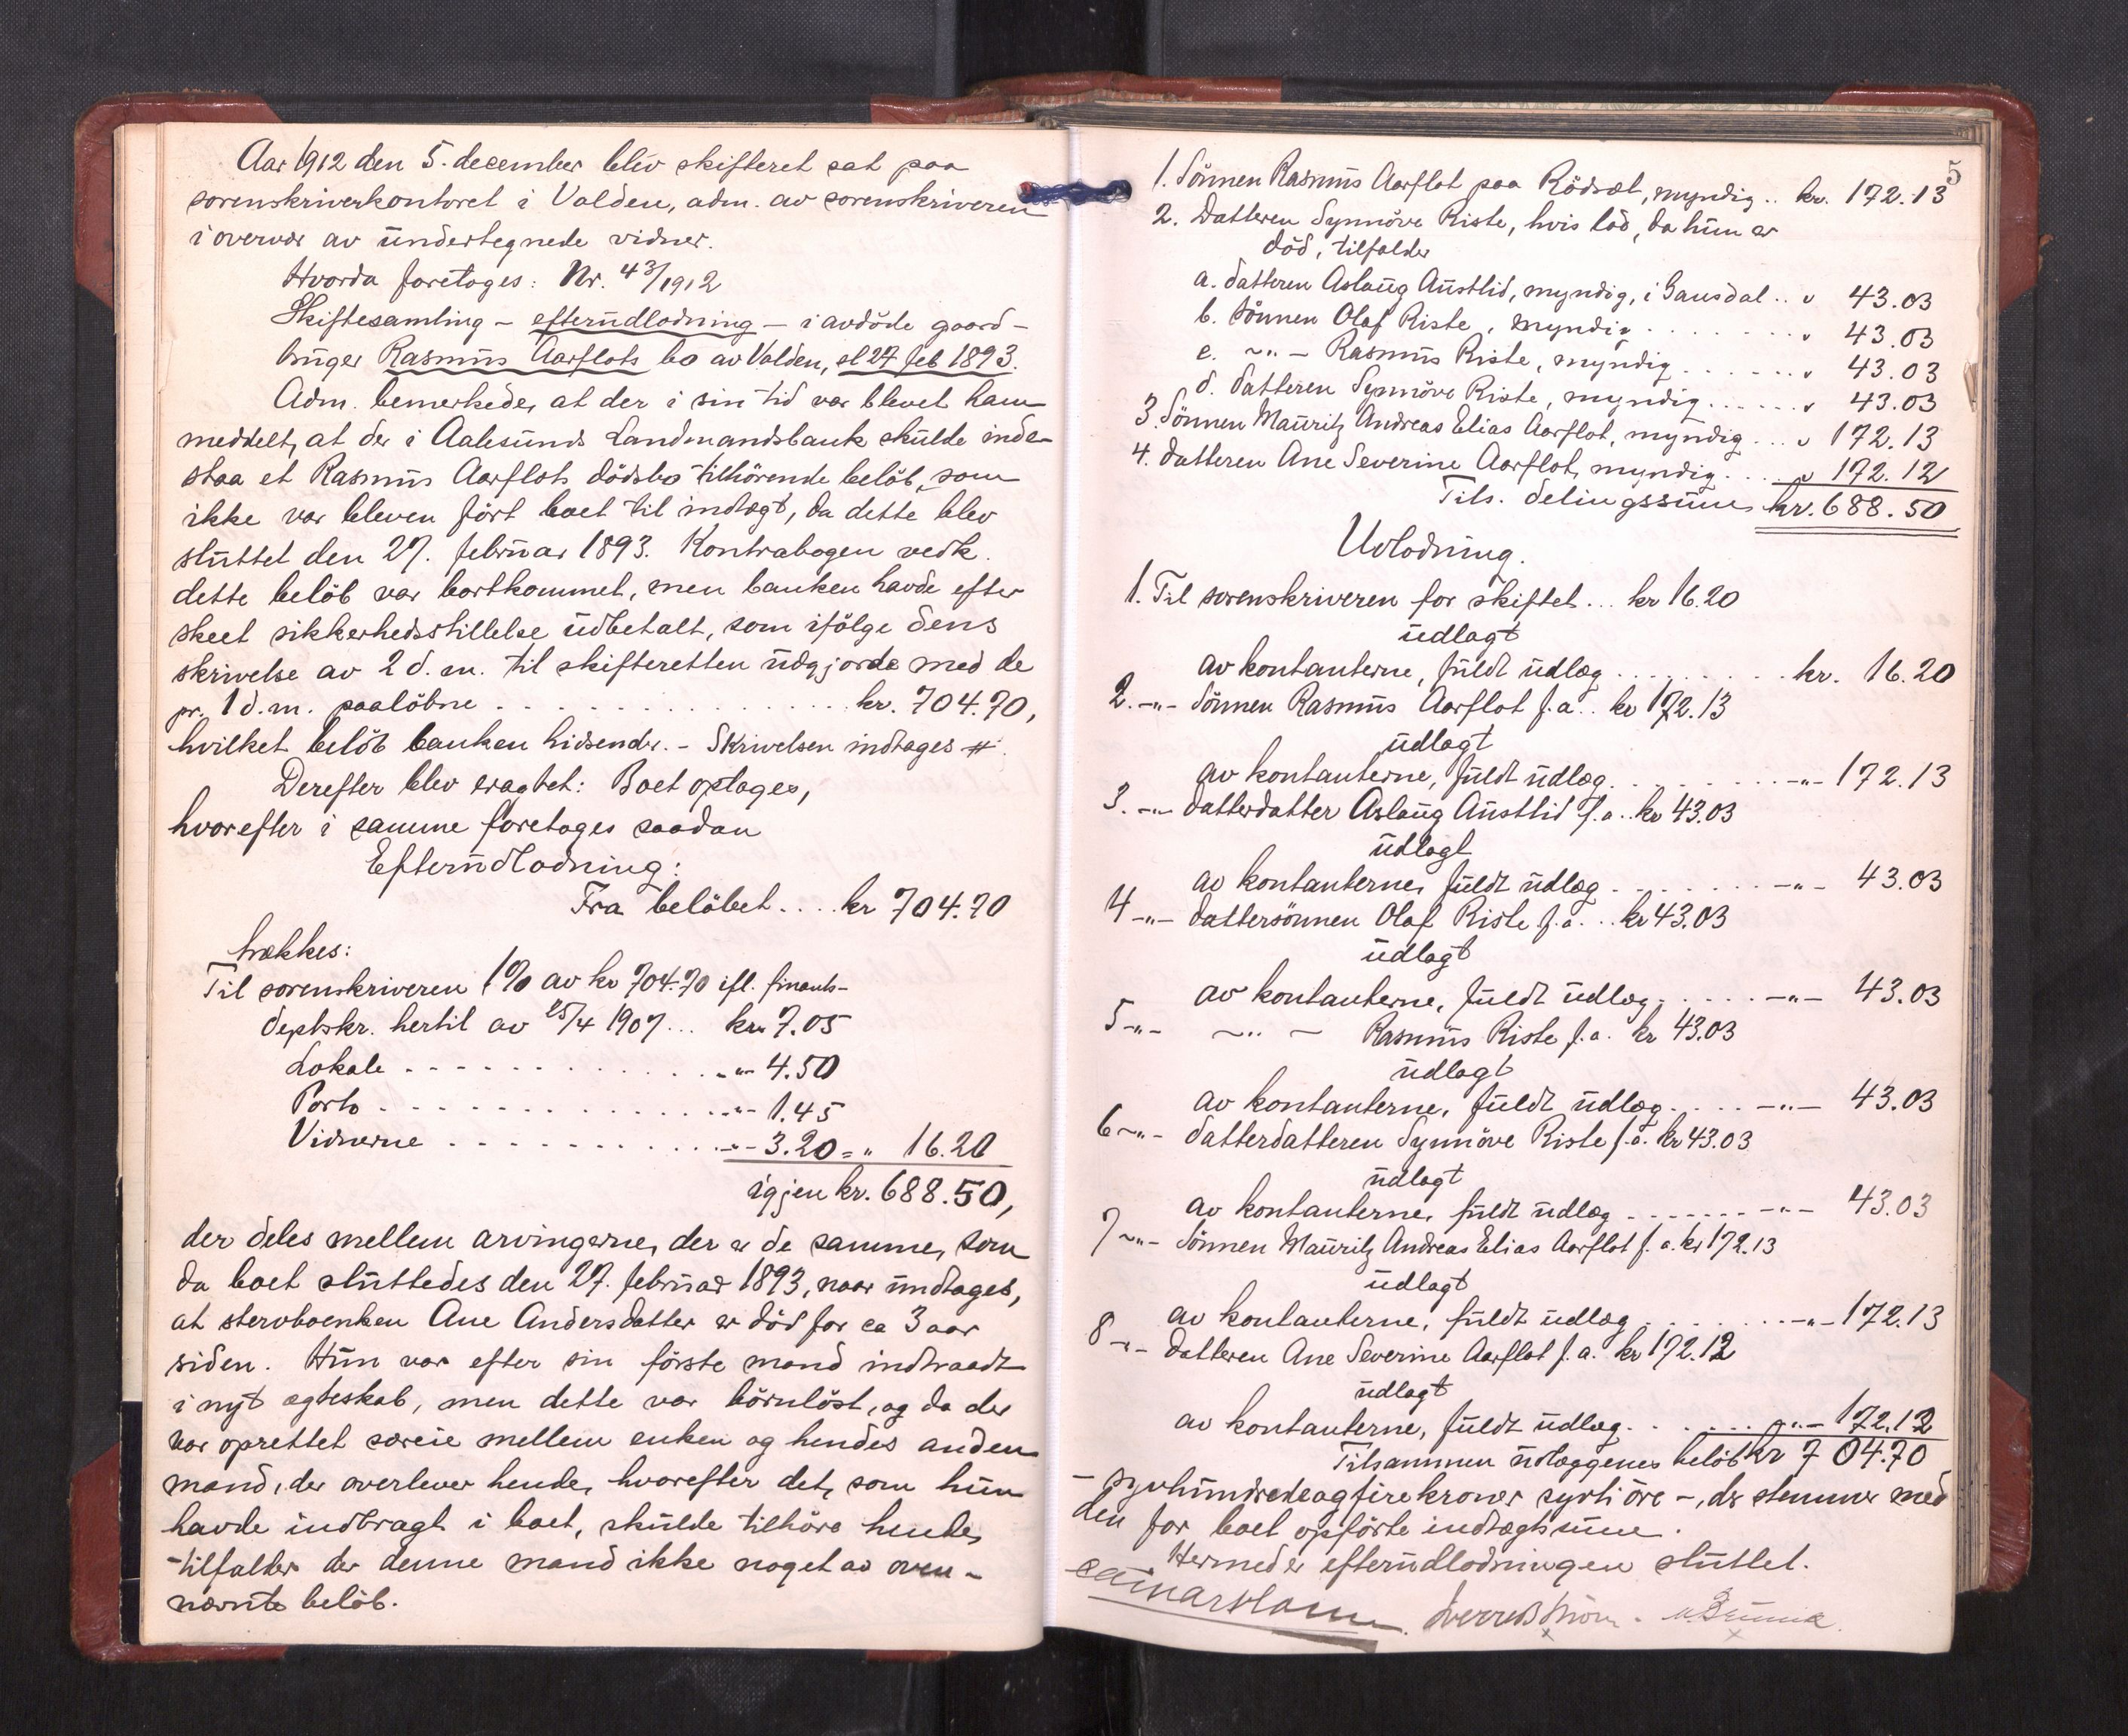 Aar 1912 den 5. december blev skifteret sat paa
sorenskriverkontoret i Volden, adm. av sorenskriveren
i overvær av undertegnede vidner.
Hvorda foretoges: Nr. 43/1912
Skiftesamling – efterudlodning – i avdöde gaard-
bruger Rasmus Aarflots bo av Volden, sl 27 feb 1893.
Adm. bemerkede, at der i sin tid var blevet ham
meddelt, at der i Aalesunds Landmandsbank skulde inde-
staa et Rasmus Aarflots dödsbo tilhörende belöb, som
ikke var bleven fört boet til indtægt, da dette blev
sluttet den 27. februar 1893. Kontrabogen vedk.
dette belöb var bortkommet, men banken havde efter
skeet sikkerhedsstillelse udbetalt, som ifölge dens
skrivelse av 2 d.m. til skifteretten udgjorde med de
pr. 1 d.m. paalöbne . . . . . kr. 704.70,
hvilket belöb banken hidsendr. – Skrivelsen indtages #.
Derefter blev eragtet: Boet optages,
hvorefter i samme foretoges saadan
Efterudlodning:
Fra belöbet .... kr 704.70
trækkes:
Til sorenskriveren 1% av kr 704.70 ifl. finants-
deptskr. hertil av 25/4 1907 ... kr. 7.05
Lokale . . . . . -"- 4.50
Porto . . . . . -"- 1.45
Vidnerne . . . . . -"- 3.20 = " 16.20
igjen kr. 688.50,
der deles mellem arvingerne, der er de samme, som
da boet sluttedes den 27. februar 1893, naar undtages,
at stervboenken Ane Andersdatter er död for ca 3 aar
siden. Hun var efter sin förste mand indtraadt
i nyt egteskab, men dette var börnlöst, og da der
var oprettet særeie mellem enken og hendes anden
mand, der overlever hende, hvorefter det, som hun
havde indbragt i boet, skulde tilhöre hende,
tilfalder der denne mand ikke noget av oven-
nævnte belöb.
5
1. Sönnen Rasmus Aarflot paa Rödsæt, myndig .. kr. 172.13
2. Datteren Synnöve Riste, hvis lod, da hun er
död, tilfalder
a. datteren Aslaug Austlid, myndig, i Gausdal .. " 43.03
b. Sönnen Olaf Riste, myndig . . . . " 43.03
c. -"- Rasmus Riste, myndig . . . . " 43.03
d. datteren Synnöve Riste, myndig . . . . " 43.03
3. Sönnen Mauritz Andreas Elias Aarflot, myndig ... " 172.13
4. datteren Ane Severine Aarflot, myndig . . . " 172.12
Tils. delingssum kr. 688.50
Udlodning.
1. Til sorenskriveren for skiftet ... kr 16.20
udlagt
av kontanterne, fuldt udlæg . . . . . kr. 16.20
2. -"- Sönnen Rasmus Aarflot f.a .. kr 172.13
udlagt
av kontanterne, fuldt udlæg . . . . . -"- 172.13
3. -"- datterdatter Aslaug Austlid f.a .. kr 43.03
udlagt
av kontanterne, fuldt udlæg . . . . . -"- 43.03
4 -"- dattersönnen Olaf Riste f.a. .. kr 43.03
udlagt
av kontanterne, fuldt udlæg . . . . . -"- 43.03
5 -"- -"- Rasmus Riste f.a. kr 43.03
udlagt
av kontanterne, fuldt udlæg . . . . -"- 43.03
6 -"- datterdatteren Synnöve Riste f.a. kr 43.03
udlagt
av kontanterne, fuldt udlæg . . . . . -"- 43.03
7 -"- Sönnen Mauritz Andreas Elias Aarflot f.a. kr 172.13
udlagt
av kontanterne, fuldt udlæg . . . . . -"- 172.13
8 -"- datteren Ane Severine Aarflot f.a. kr 172.12
udlagt
av kontanterne, fuldt udlæg . . . . . -"- 172.12
Tilsammen udlæggenes belöb kr 704.70
– syvhundredeogfirekroner sytti öre –, der stemmer med
den for boet opförte indtægtssum.
Hermed er efterudlodningen sluttet.